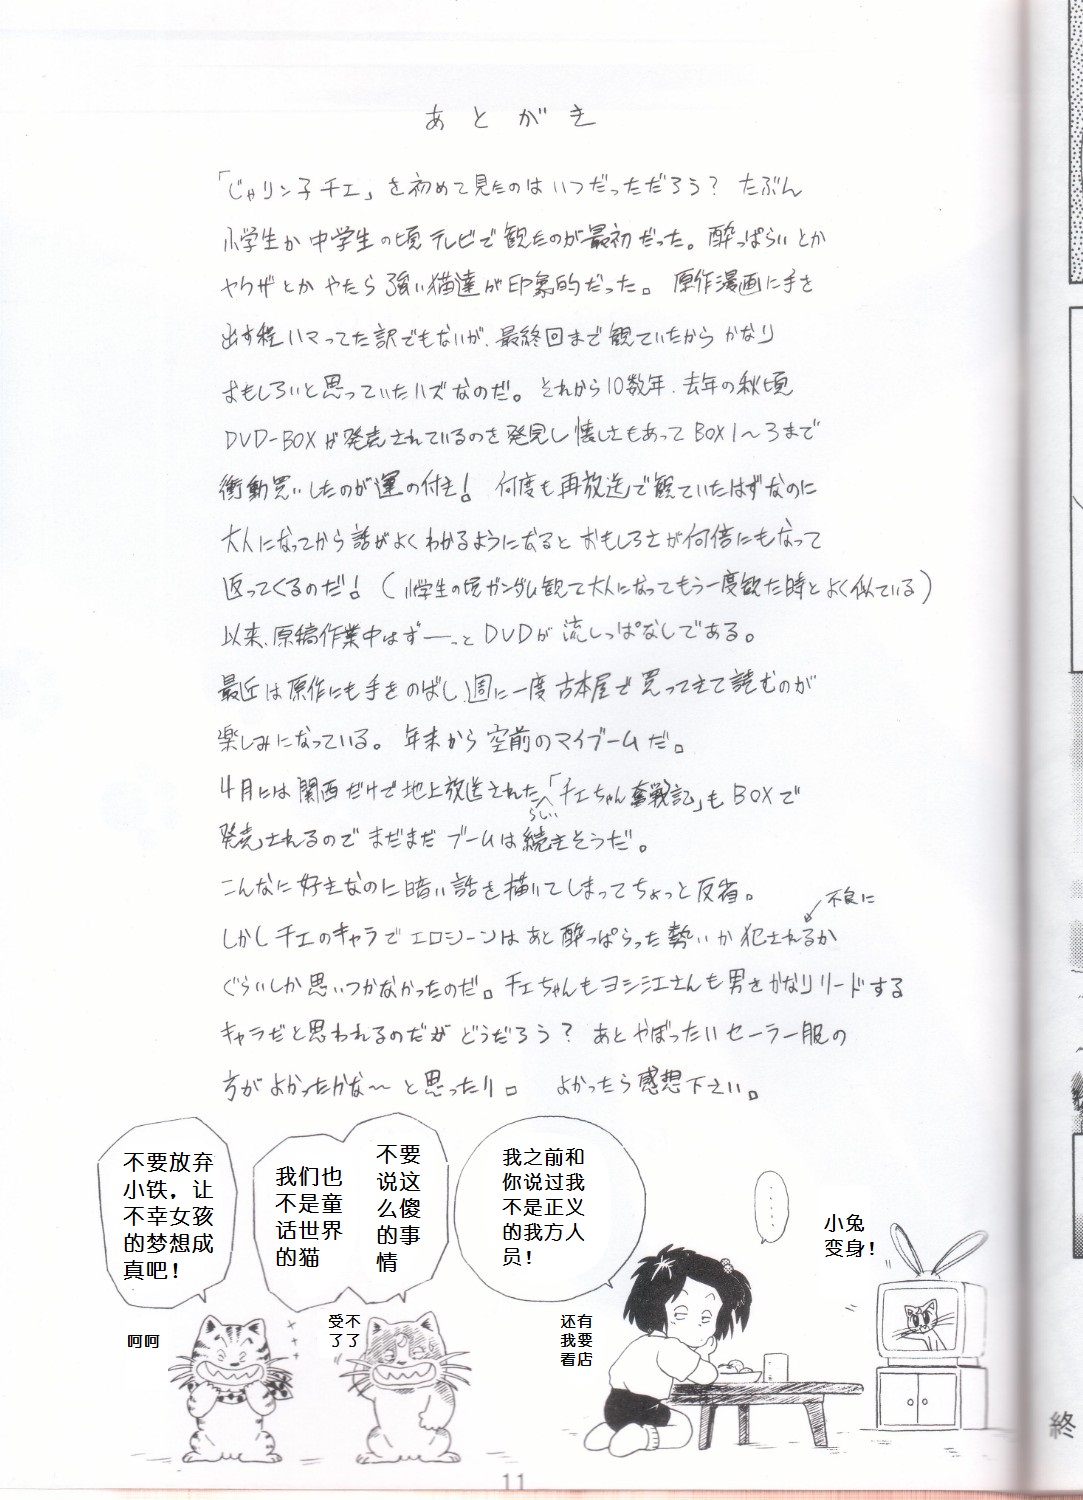 あとがき
「じゃリン子チエ」を初めて見たのはいつだっただろう？ たぶん
小学生か中学生の頃テレビで観たのが最初だった。酔っぱらいとか
ヤクザとかやたら強い猫達が印象的だった。原作漫画に手を
出す程ハマってた訳でもないが、最終回まで観ていたからかなり
おもしろいと思っていたハズなのだ。それから10数年、去年の秋頃
DVD-BOXが発売されているのを発見し懐しさもあってBOX1〜3まで
衝動買いしたのが運の付き！ 何度も再放送で観ていたはずなのに
大人になってから話がよくわかるようになるとおもしろさが何倍にもなって
返ってくるのだ！（小学生の頃ガンダム観て大人になってもう一度観た時とよく似ている）
以来、原稿作業中はずーーっとDVDが流しっぱなしである。
最近は原作にも手をのばし、週に一度古本屋で買ってきて読むのが
楽しみになっている。年末から空前のマイブームだ。
4月には関西だけで地上放送されたらしい「チエちゃん奮戦記」もBOXで
発売されるのでまだまだブームは続きそうだ。
こんなに好きなのに暗い話を描いてしまってちょっと反省。
よかったら感想下さい。
不要放弃
小铁，让
不幸女孩
的梦想成
真吧！
呵呵
不要
说这
么傻
的事
情
我们也
不是童
话世界
的猫
受不
了了
我之前和
你说过我
不是正义
的我方人
员！
还有
我要
看店
……
小兔
变身！
11
終